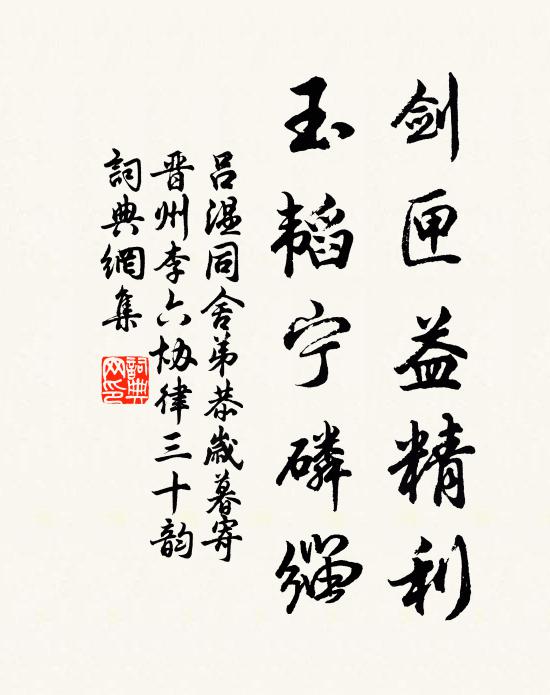 剑匣益精利
玉韬宁磷缁
吕温同舍弟恭岁暮寄
晋州李六协律三十韵
词典網集
詞典網印